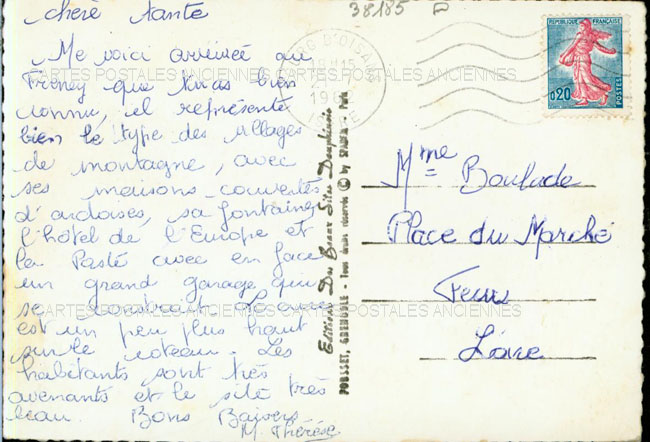 38185 D
chère tante
Me voici arrivée au
Freney que tu as bien
connu, il représente
bien le type des villages
de montagne, avec
ses maisons couvertes
d'ardoises, sa fontaine,
l'hôtel de l'Europe et
la Poste avec en face
un grand garage qui
se construit
est un peu plus haut
sur le coteau. Les
habitants sont très
avenants et le site très
beau. Bons Baisers
M. Thérèse
CARTES POSTALES ANCIENNES CARTES POSTALES ANCIENNES
CARTES POSTALES ANCIENNES CARTES POSTALES ANCIENNES
D'OISANS
19H15
Editions Des Beaux Sites Dauphinois
POUSSET, GRENOBLE - Tous droits réservés © by SPADEM - Paris
REPUBLIQUE FRANÇAISE
0,20
POSTES
Mme Boulade
Place du Marché
Feurs
Loire